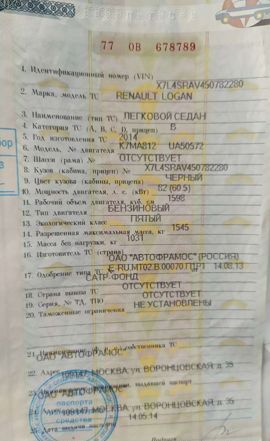 77 ОВ 678789
1. Идентификационный номер (VIN) X7L4SRAV450782280
2. Марка, модель ТС RENAULT LOGAN
3. Наименование (тип ТС) ЛЕГКОВОЙ СЕДАН
4. Категория ТС (A, B, C, D, прицеп) B
5. Год изготовления ТС 2014
6. Модель, № двигателя K7MA812 UA50572
7. Шасси (рама) № ОТСУТСТВУЕТ
8. Кузов (кабина, прицеп) № X7L4SRAV450782280
9. Цвет кузова (кабины, прицепа) ЧЕРНЫЙ
10. Мощность двигателя, л. с. (кВт) 82 (60.5)
11. Рабочий объем двигателя, куб. см 1598
12. Тип двигателя БЕНЗИНОВЫЙ
13. Экологический класс ПЯТЫЙ
14. Разрешенная максимальная масса, кг 1545
15. Масса без нагрузки, кг 1031
16. Изготовитель ТС (страна) ОАО "АВТОФРАМОС" (РОССИЯ)
17. Одобрение типа ТС
САТР-ФОНД
18. Страна вывоза ТС ОТСУТСТВУЕТ
19. Серия, № ТД, ТПО ОТСУТСТВУЕТ
20. Таможенные ограничения НЕ УСТАНОВЛЕНЫ
21.
ОАО "АВТОФРАМОС"
22. 109147, МОСКВА, ул. ВОРОНЦОВСКАЯ, д. 35
ОАО "АВТОФРАМОС"
109147, МОСКВА, ул. ВОРОНЦОВСКАЯ, д. 35
14.05.14